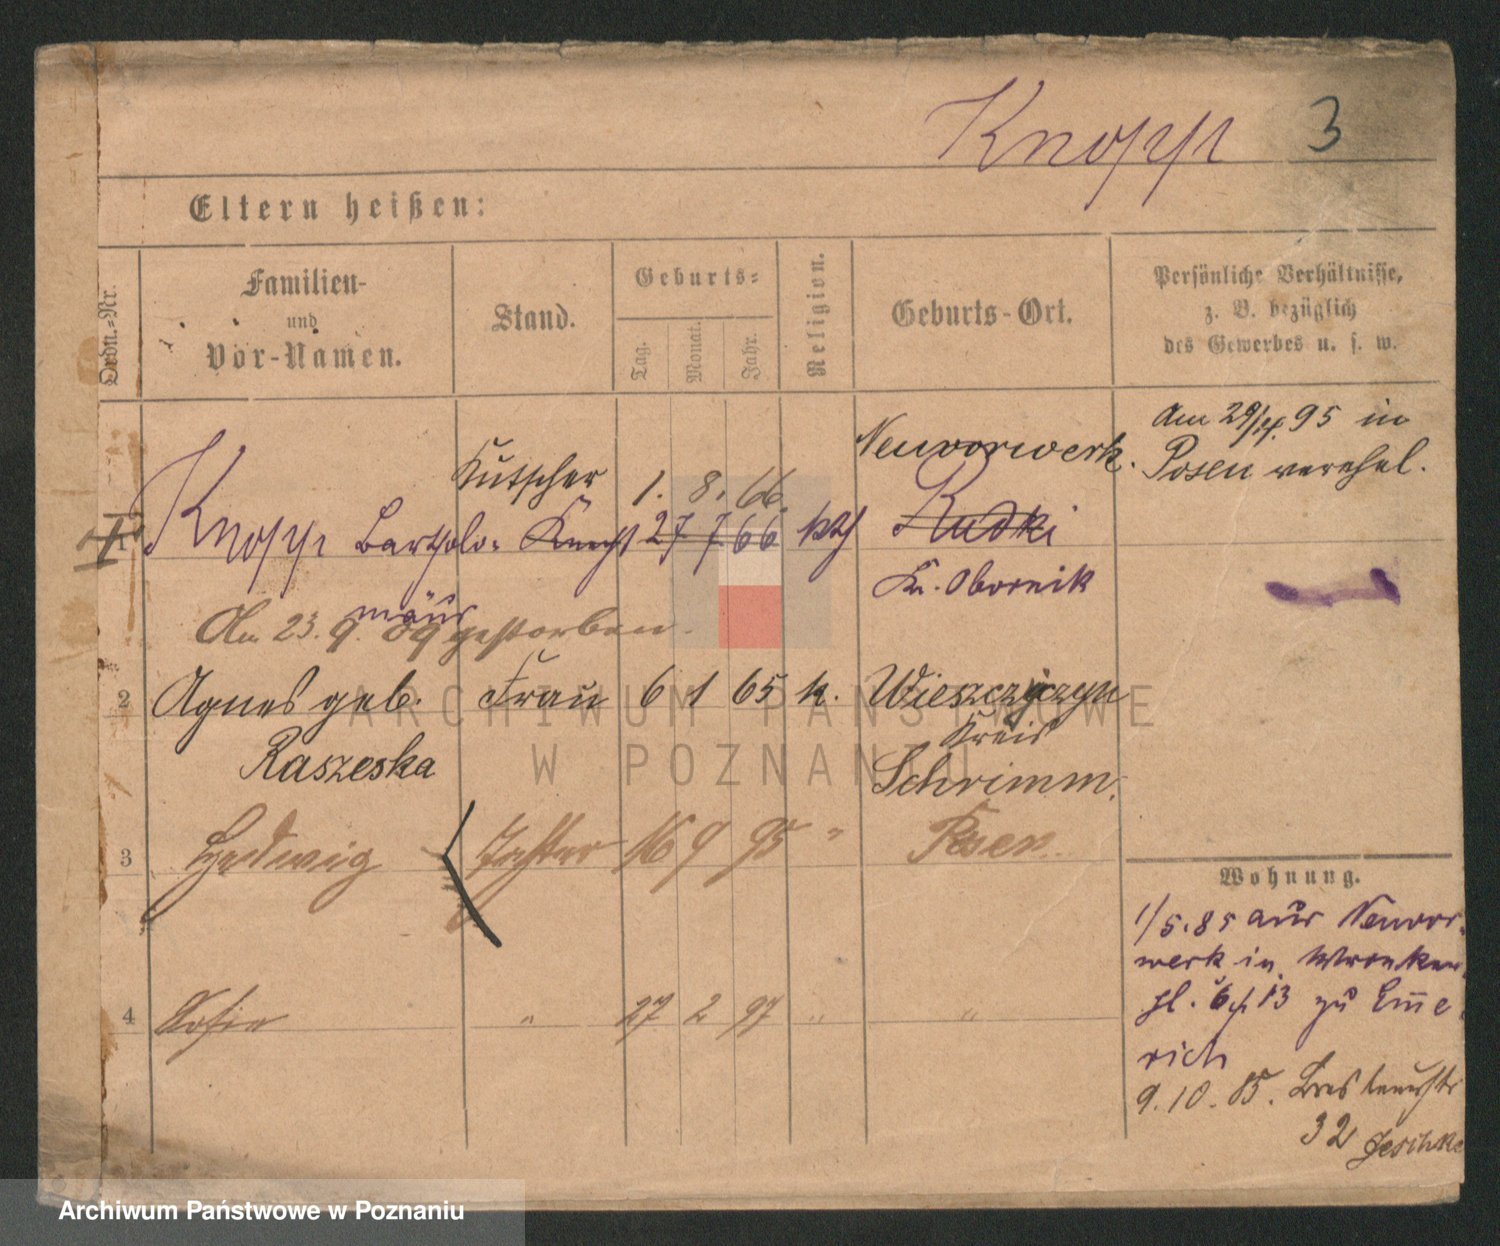 Knopp 3
Eltern heißen:
Ordn.-Nr.
Familien-
und
Vor-Namen.
Stand.
Geburts-
Tag.
Monat.
Jahr.
Religion.
Geburts-Ort.
Persönliche Verhältnisse,
z. B. bezüglich
des Gewerbes u. s. w.
Am 29/4. 95 in
Posen verehel.
Kutscher 1. 8. 66. Neuvorwerk.
1 Knopp Bartholo- Knecht 27 7 66 kth Rudki
mäus
Kr. Obornik
Am 23. 9. 09 gestorben.
2 Agnes geb. Frau 6 1 65 k. Wieszczyczyn
Raszeska
Kreis
Schrimm.
3 Hedwig Tochter 16 9 95 " Posen
4 Sofie " 27 2 97 " "
Wohnung.
1/5.85 aus Neuvor-
werk in Wronker-
pl. 6/13 zu Eme-
rich
9.10.85.
32 Jeschke
ARCHIWUM PAŃSTWOWE
W POZNANIU
Archiwum Państwowe w Poznaniu